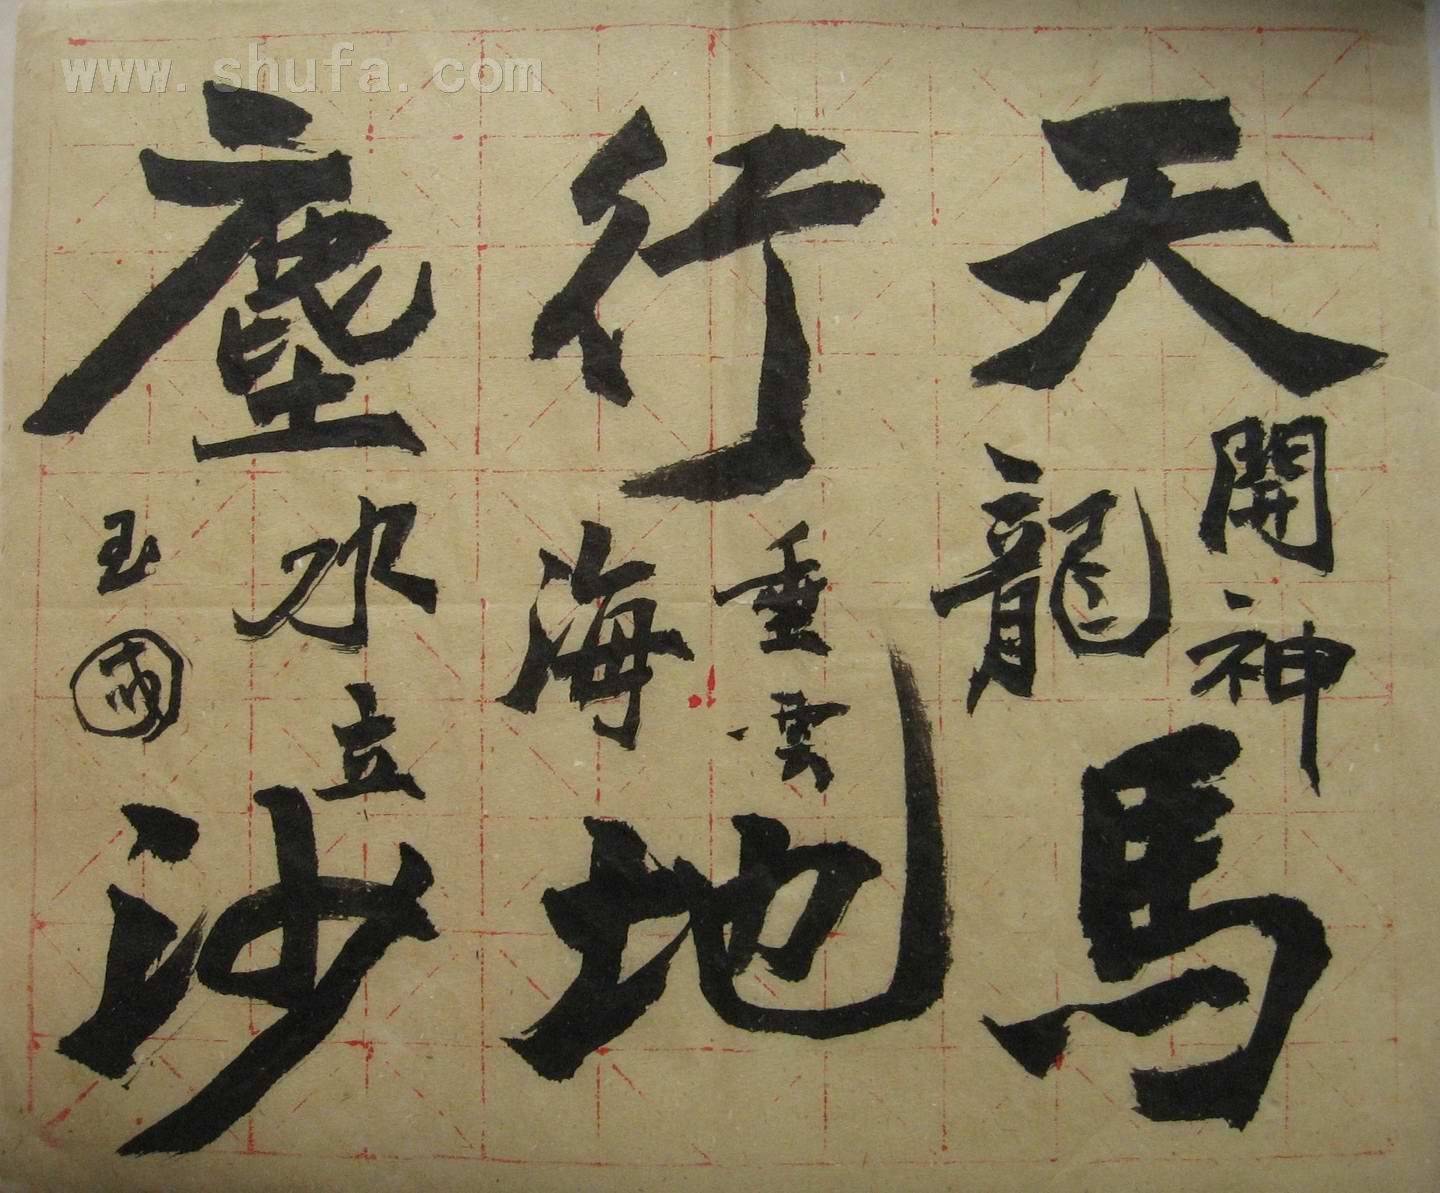 www.shufa.com
天開神龍馬
行垂雲海地
塵水立沙
玉